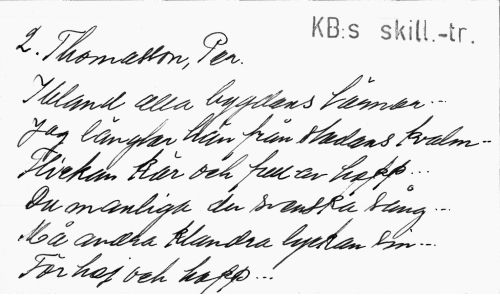 KB:s skill.-tr.
2. Thomasson, Per.
Ibland alla bygdens tärnor...
Jag längtar hän från stadens kvalm...
Flickan kär och full av hopp...
Du manliga du svenska sång...
Må andra klandra lyckan sin...
För haj och hopp...